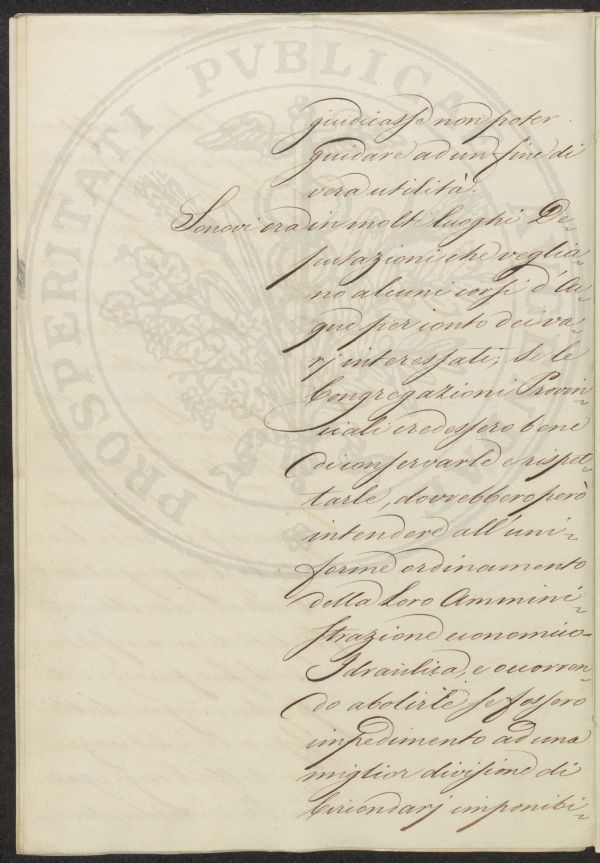 giudicasse non poter
guidare ad un fine di
vera utilità.
Sonovi ora in molti luoghi De-
putazioni che veglia-
no alcuni corsi d'Ac-
que per conto dei va-
rj interessati; se le
Congregazioni Provin-
ciali credessero bene
di conservarle e rispet-
tarle, dovrebbero però
intendere all'uni-
forme ordinamento
della loro Ammini-
strazione economico-
Idraulica, e occorren-
do abolirle se fossero
impedimento ad una
miglior divisione di
Circondarj imponibi-
PROSPERITATI PVBLICAE